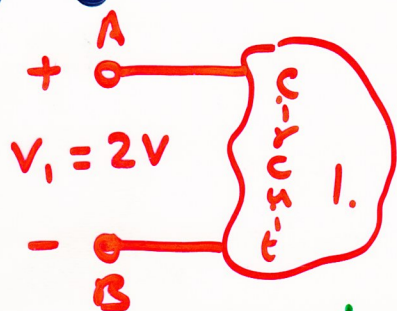 A
+
V₁ = 2V
-
B
Circuit
1.